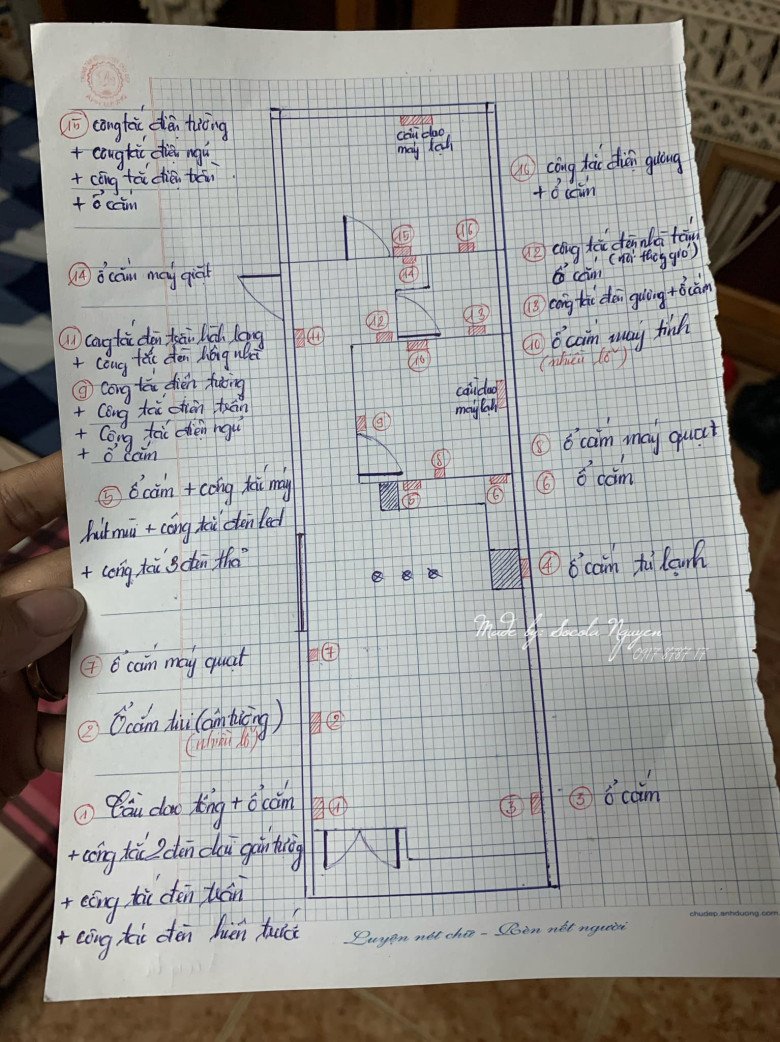 ⑮ công tắc điện tường
+ công tắc điện ngủ
+ công tắc điện trần
+ ổ cắm
⑭ ổ cắm máy giặt
⑪ công tắc đèn trần hành lang
+ công tắc đèn hông nhà
⑨ công tắc điện tường
+ công tắc điện trần
+ công tắc điện ngủ
+ ổ cắm
⑤ ổ cắm + công tắc máy
hút mùi + công tắc đèn led
+ công tắc 3 đèn thả
⑦ ổ cắm máy quạt
② Ổ cắm tivi (âm tường)
(nhiều lỗ)
① Cầu dao tổng + ổ cắm
+ công tắc 2 đèn dài gắn tường
+ công tắc đèn trần
+ công tắc đèn hiên trước
cầu dao
máy lạnh
⑮
⑯
⑭
⑪
⑫
⑬
⑩
cầu dao
máy lạnh
⑨
⑧
⑤
⑥
⑦
②
①
③
⑯ công tắc điện gương
+ ổ cắm
⑫ công tắc đèn nhà tắm
ổ cắm (nối thông gió)
⑬ công tắc đèn gương + ổ cắm
⑩ ổ cắm máy tính
(nhiều lỗ)
⑧ ổ cắm máy quạt
⑥ ổ cắm
④ ổ cắm tủ lạnh
Made by: Socola Nguyen
0917 8787 17
③ ổ cắm
chudep.anhduong.com
Luyện nét chữ - Rèn nết người